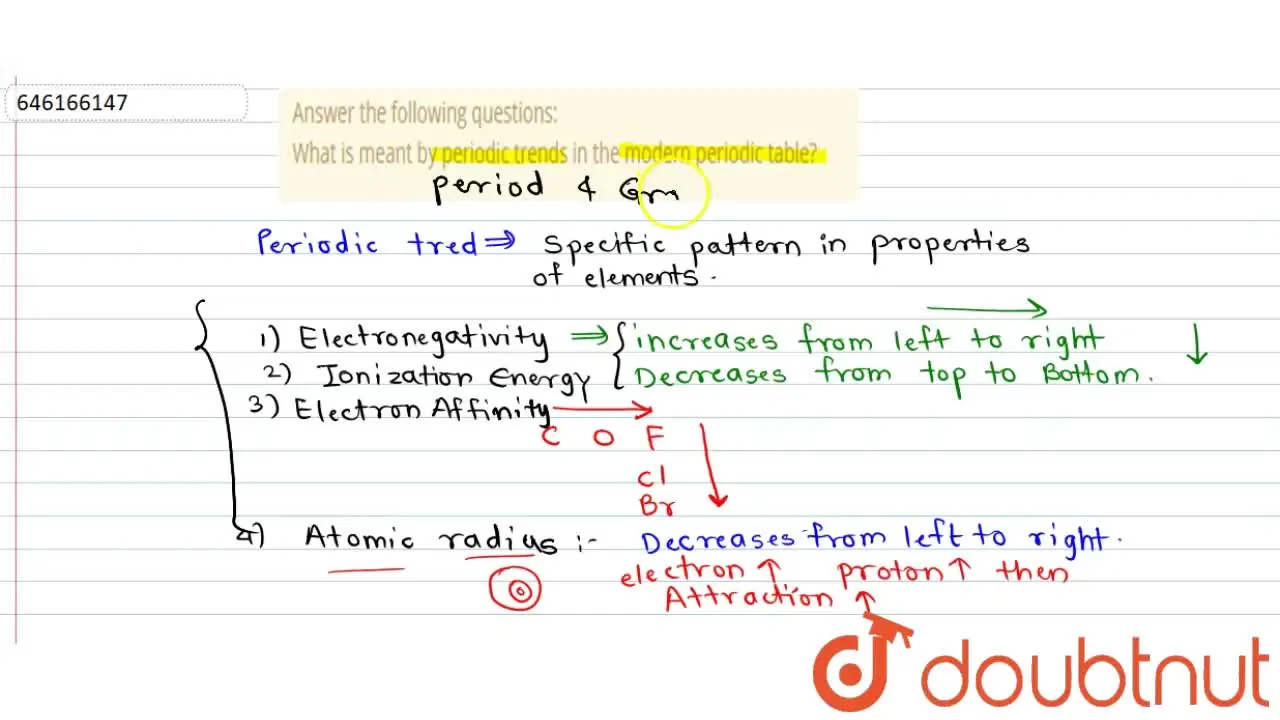 646166147
Answer the following questions:
What is meant by periodic trends in the modern periodic table?
Period & Gra
Periodic tred ⇒ Specific pattern in properties
of elements.
1) Electronegativity ⇒ { increases from left to right
2) Ionization Energy { Decreases from top to Bottom.
3) Electron Affinity
C O F
Cl
Br
4) Atomic radius :- Decreases from left to right.
electron ↑ proton ↑ then
Attraction ↑
doubtnut